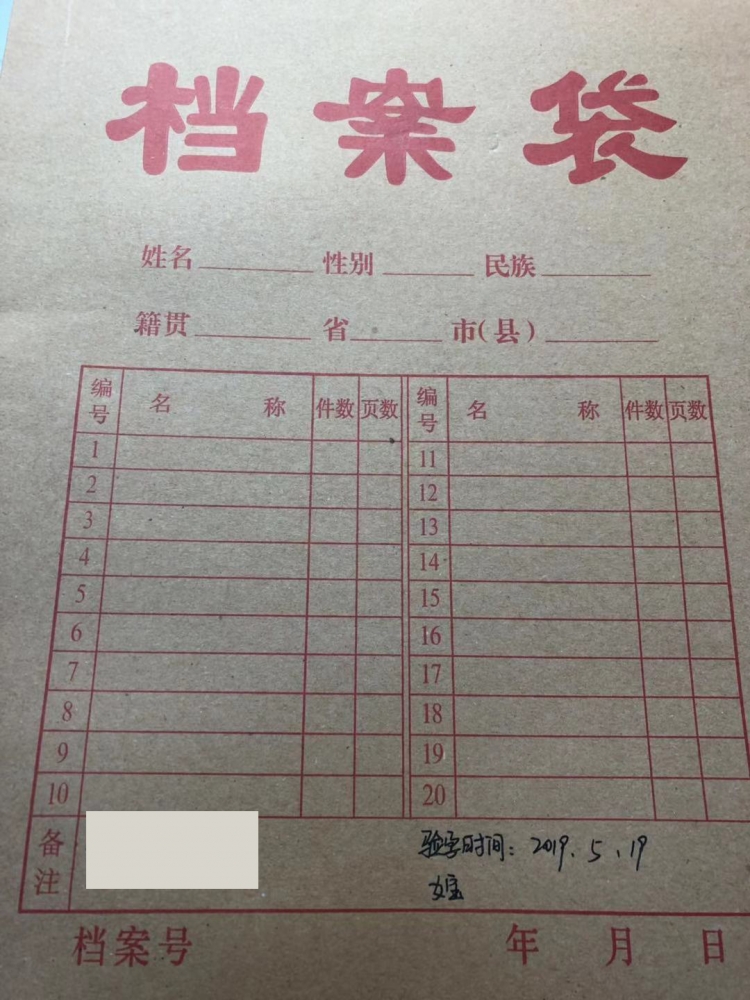 档案袋
姓名 性别 民族
籍贯 省 市(县)
编号 名 称 件数 页数 编号 名 称 件数 页数
1 11
2 12
3 13
4 14
5 15
6 16
7 17
8 18
9 19
10 20
备注 验孕时间：2019.5.19
女宝
档案号 年 月 日